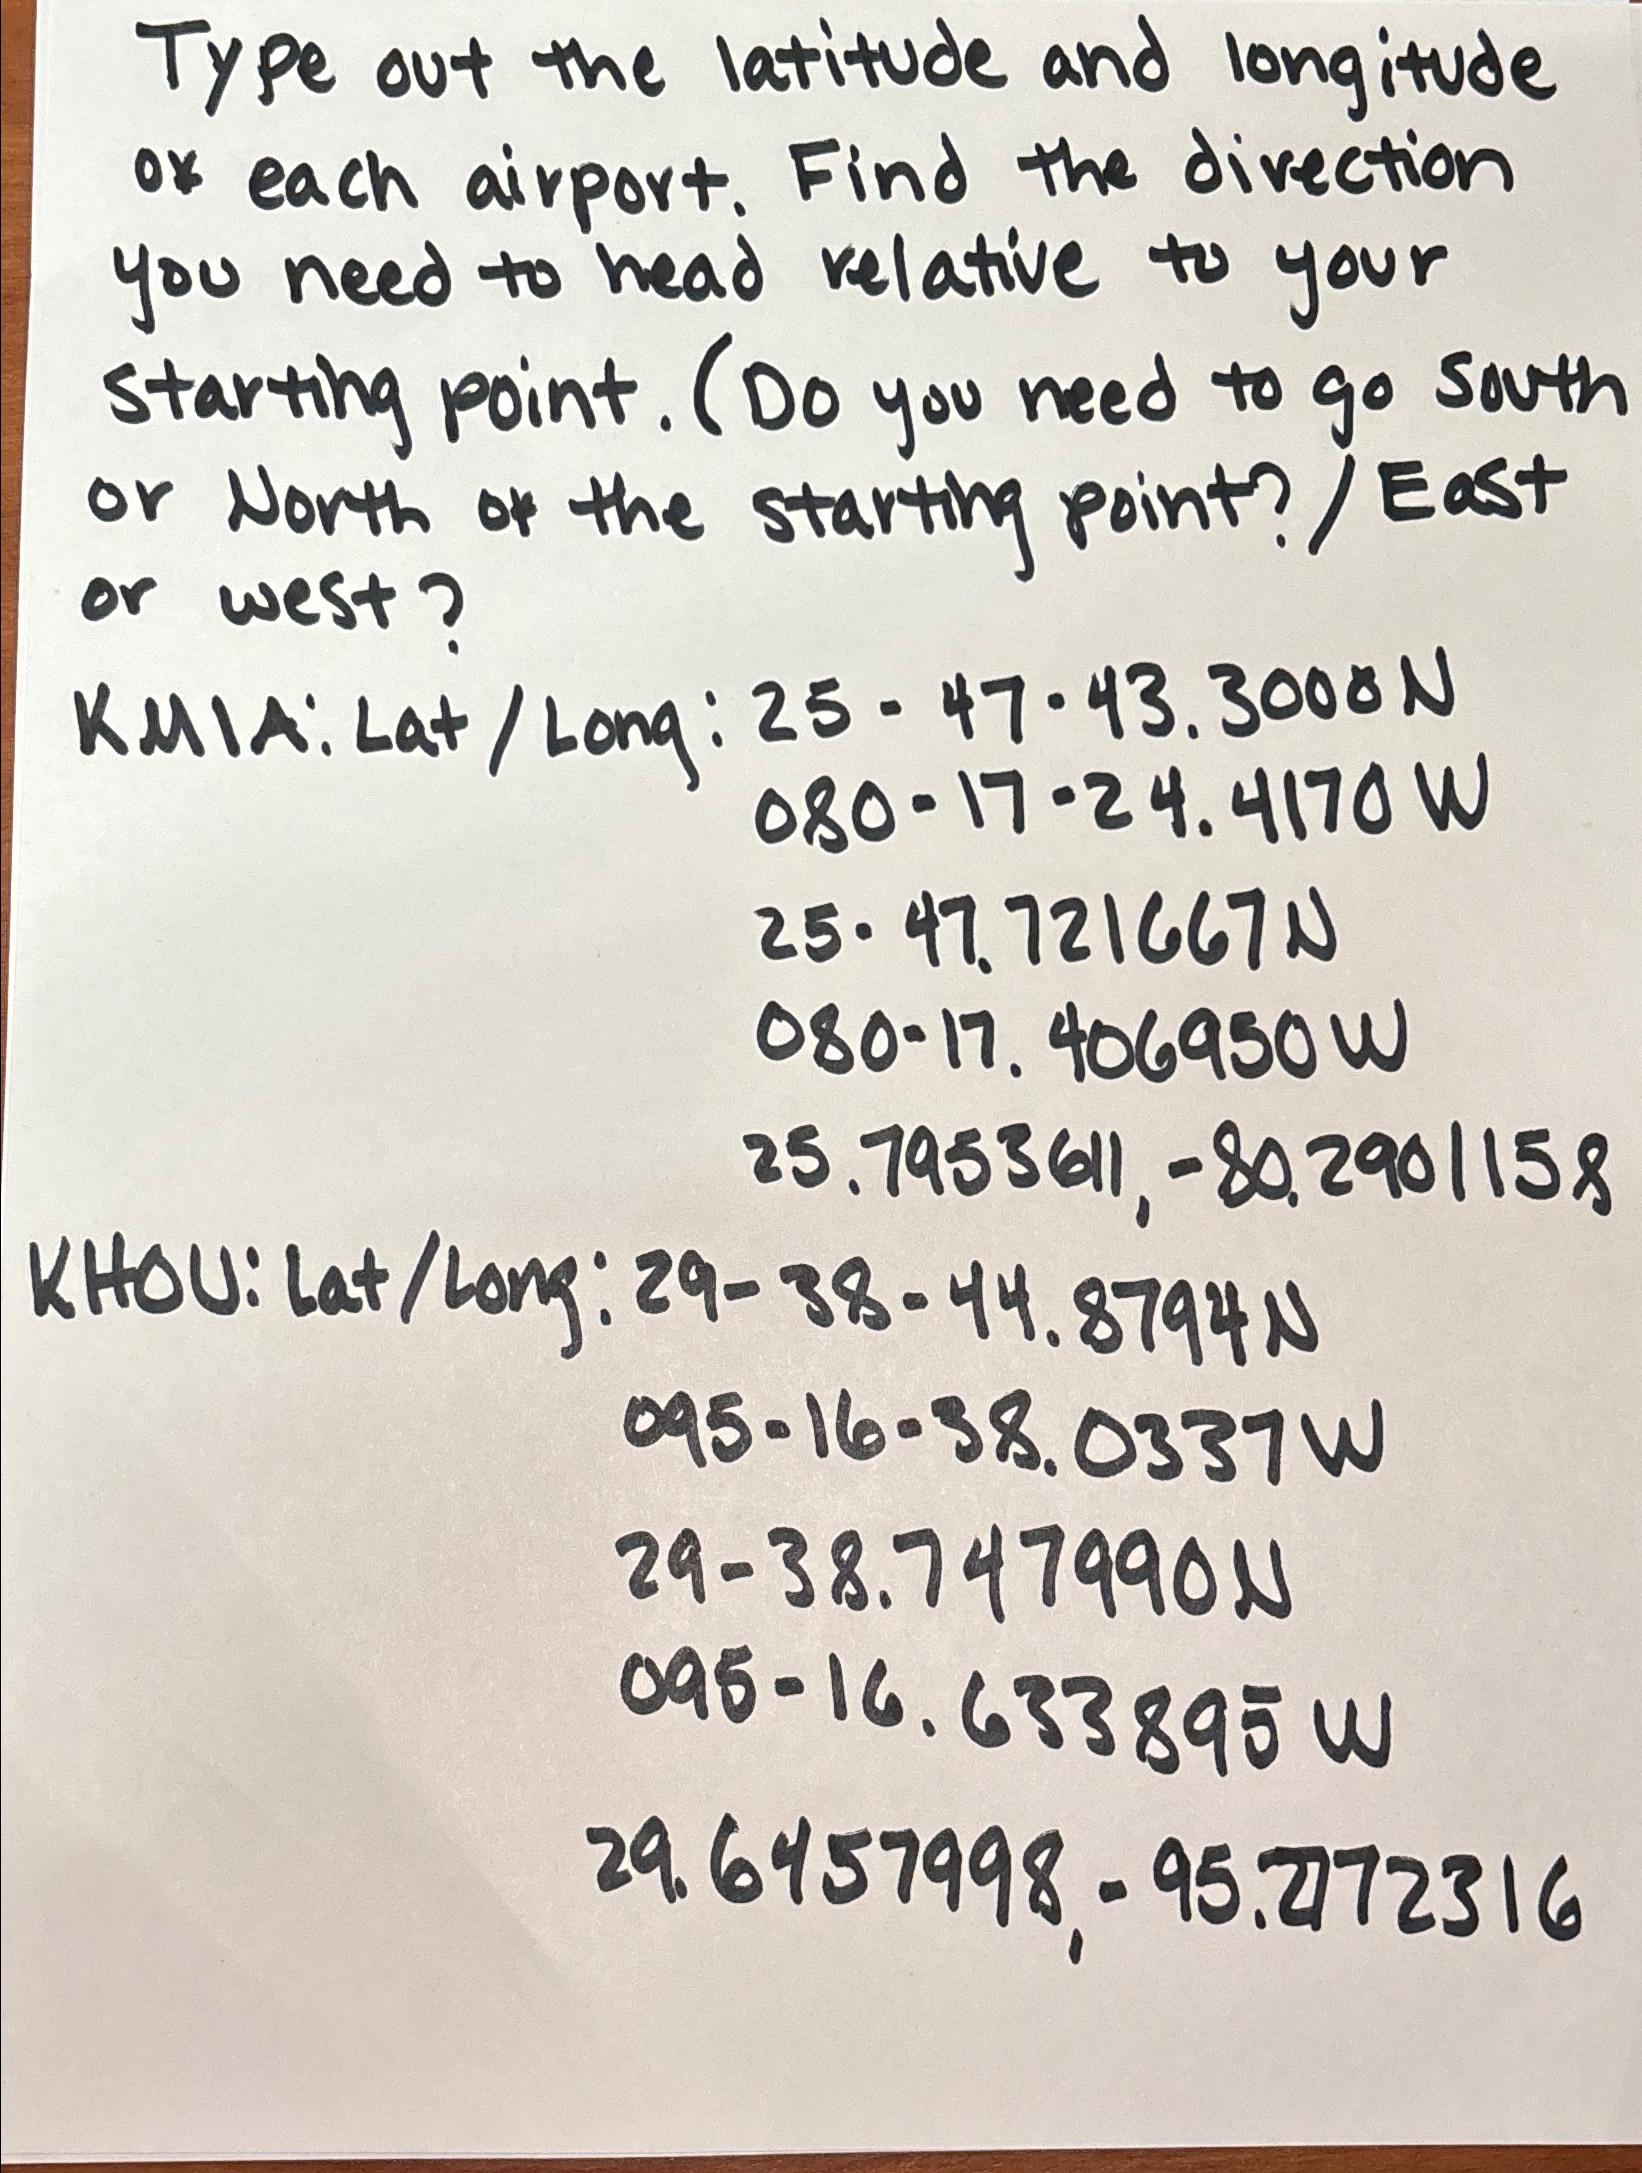 Type out the latitude and longitude
of each airport. Find the direction
you need to head relative to your
starting point. (Do you need to go South
or North of the starting point? / East
or west?
KMIA: Lat / Long: 25 - 47 - 43.3000 N
080 - 17 - 24.4170 W
25 - 47.721667 N
080 - 17.406950 W
25.7953611, -80.2901158
KHOU: Lat / Long: 29 - 38 - 44.8794 N
095 - 16 - 38.0337 W
29 - 38.747990 N
095 - 16.633895 W
29.6457998, -95.2772316